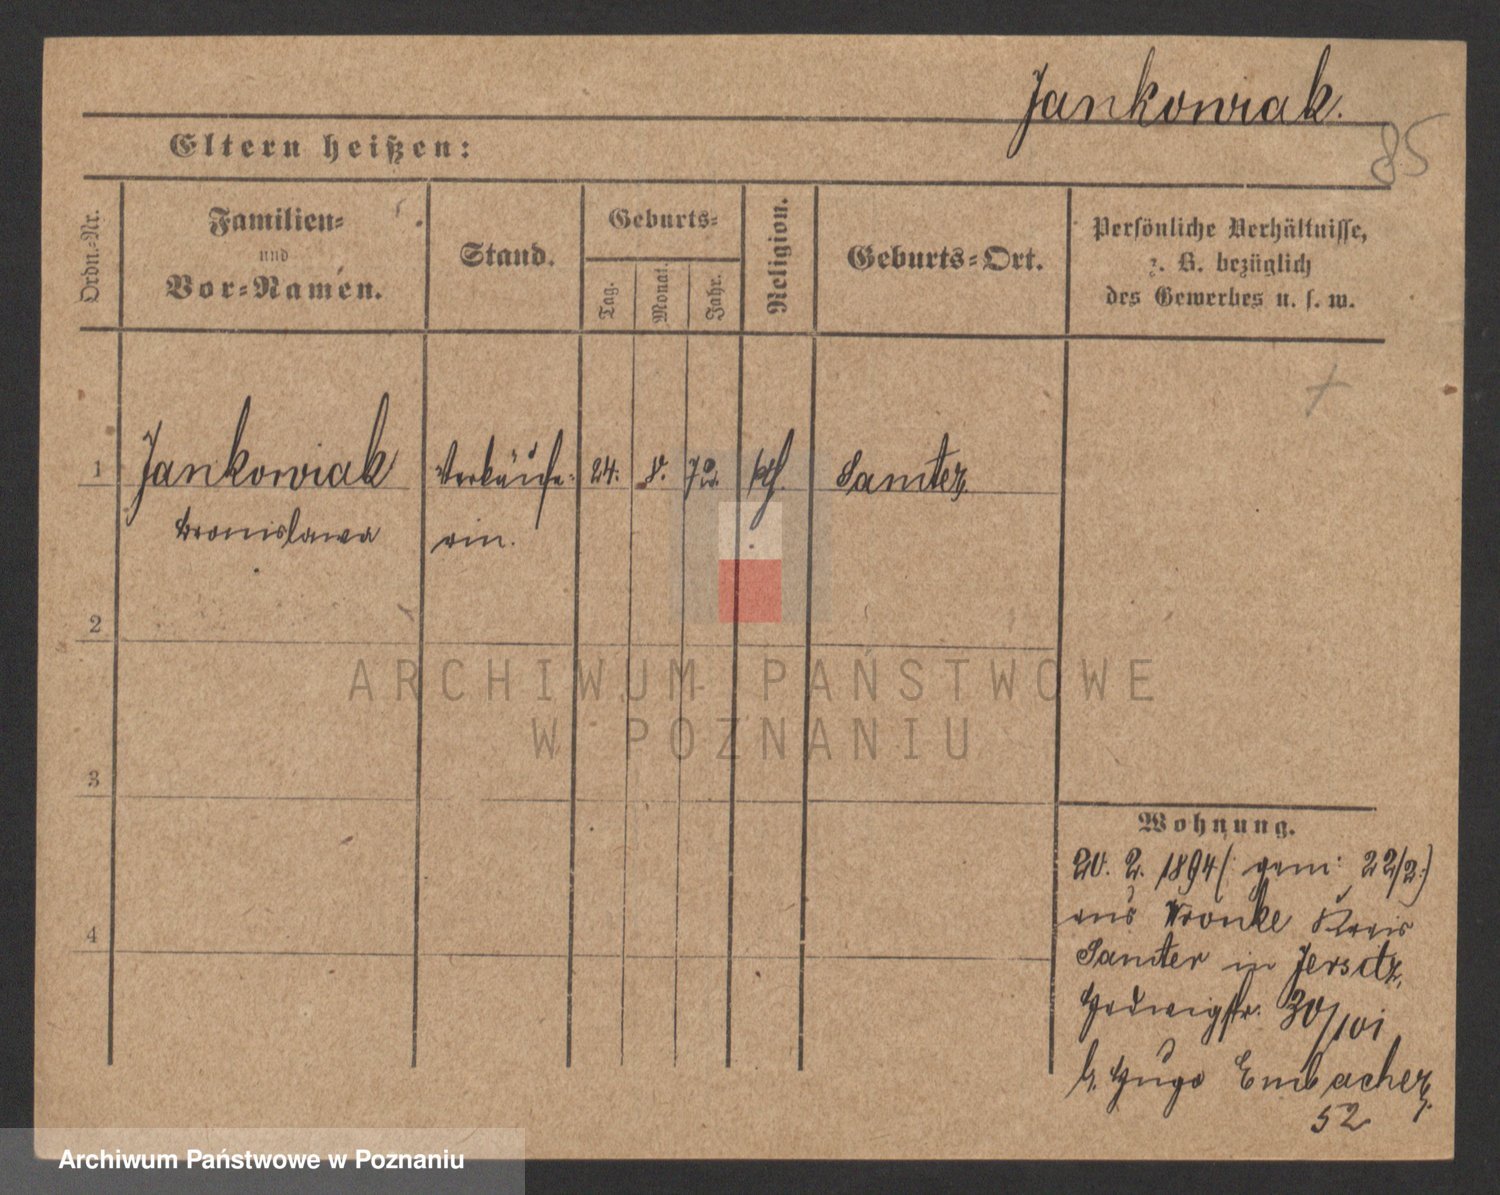 Jankowiak.
85
Eltern heißen:
Ordn.-Nr.
Familien-
und
Vor-Namen.
Stand.
Geburts-
Tag.
Monat.
Jahr.
Religion.
Geburts-Ort.
Persönliche Verhältnisse,
z. B. bezüglich
des Gewerbes u. s. w.
1
Jankowiak
Verkäufe-
24.
8.
kth.
Samter
Bronislawa
rin.
2
ARCHIWUM PAŃSTWOWE
W POZNANIU
3
4
Wohnung.
20. 2. 1894 (: gem: 22/2:)
aus Wronke Kreis
Samter in Jersitz,
Hedwigstr. 30/
b. Hugo Embacher
52
Archiwum Państwowe w Poznaniu